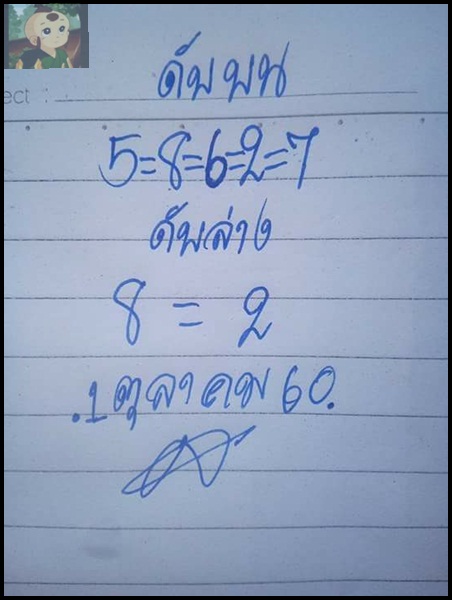 ect :
ดับบน
5=8=6=2=7
ดับล่าง
8 = 2
.1 ตุลาคม 60.